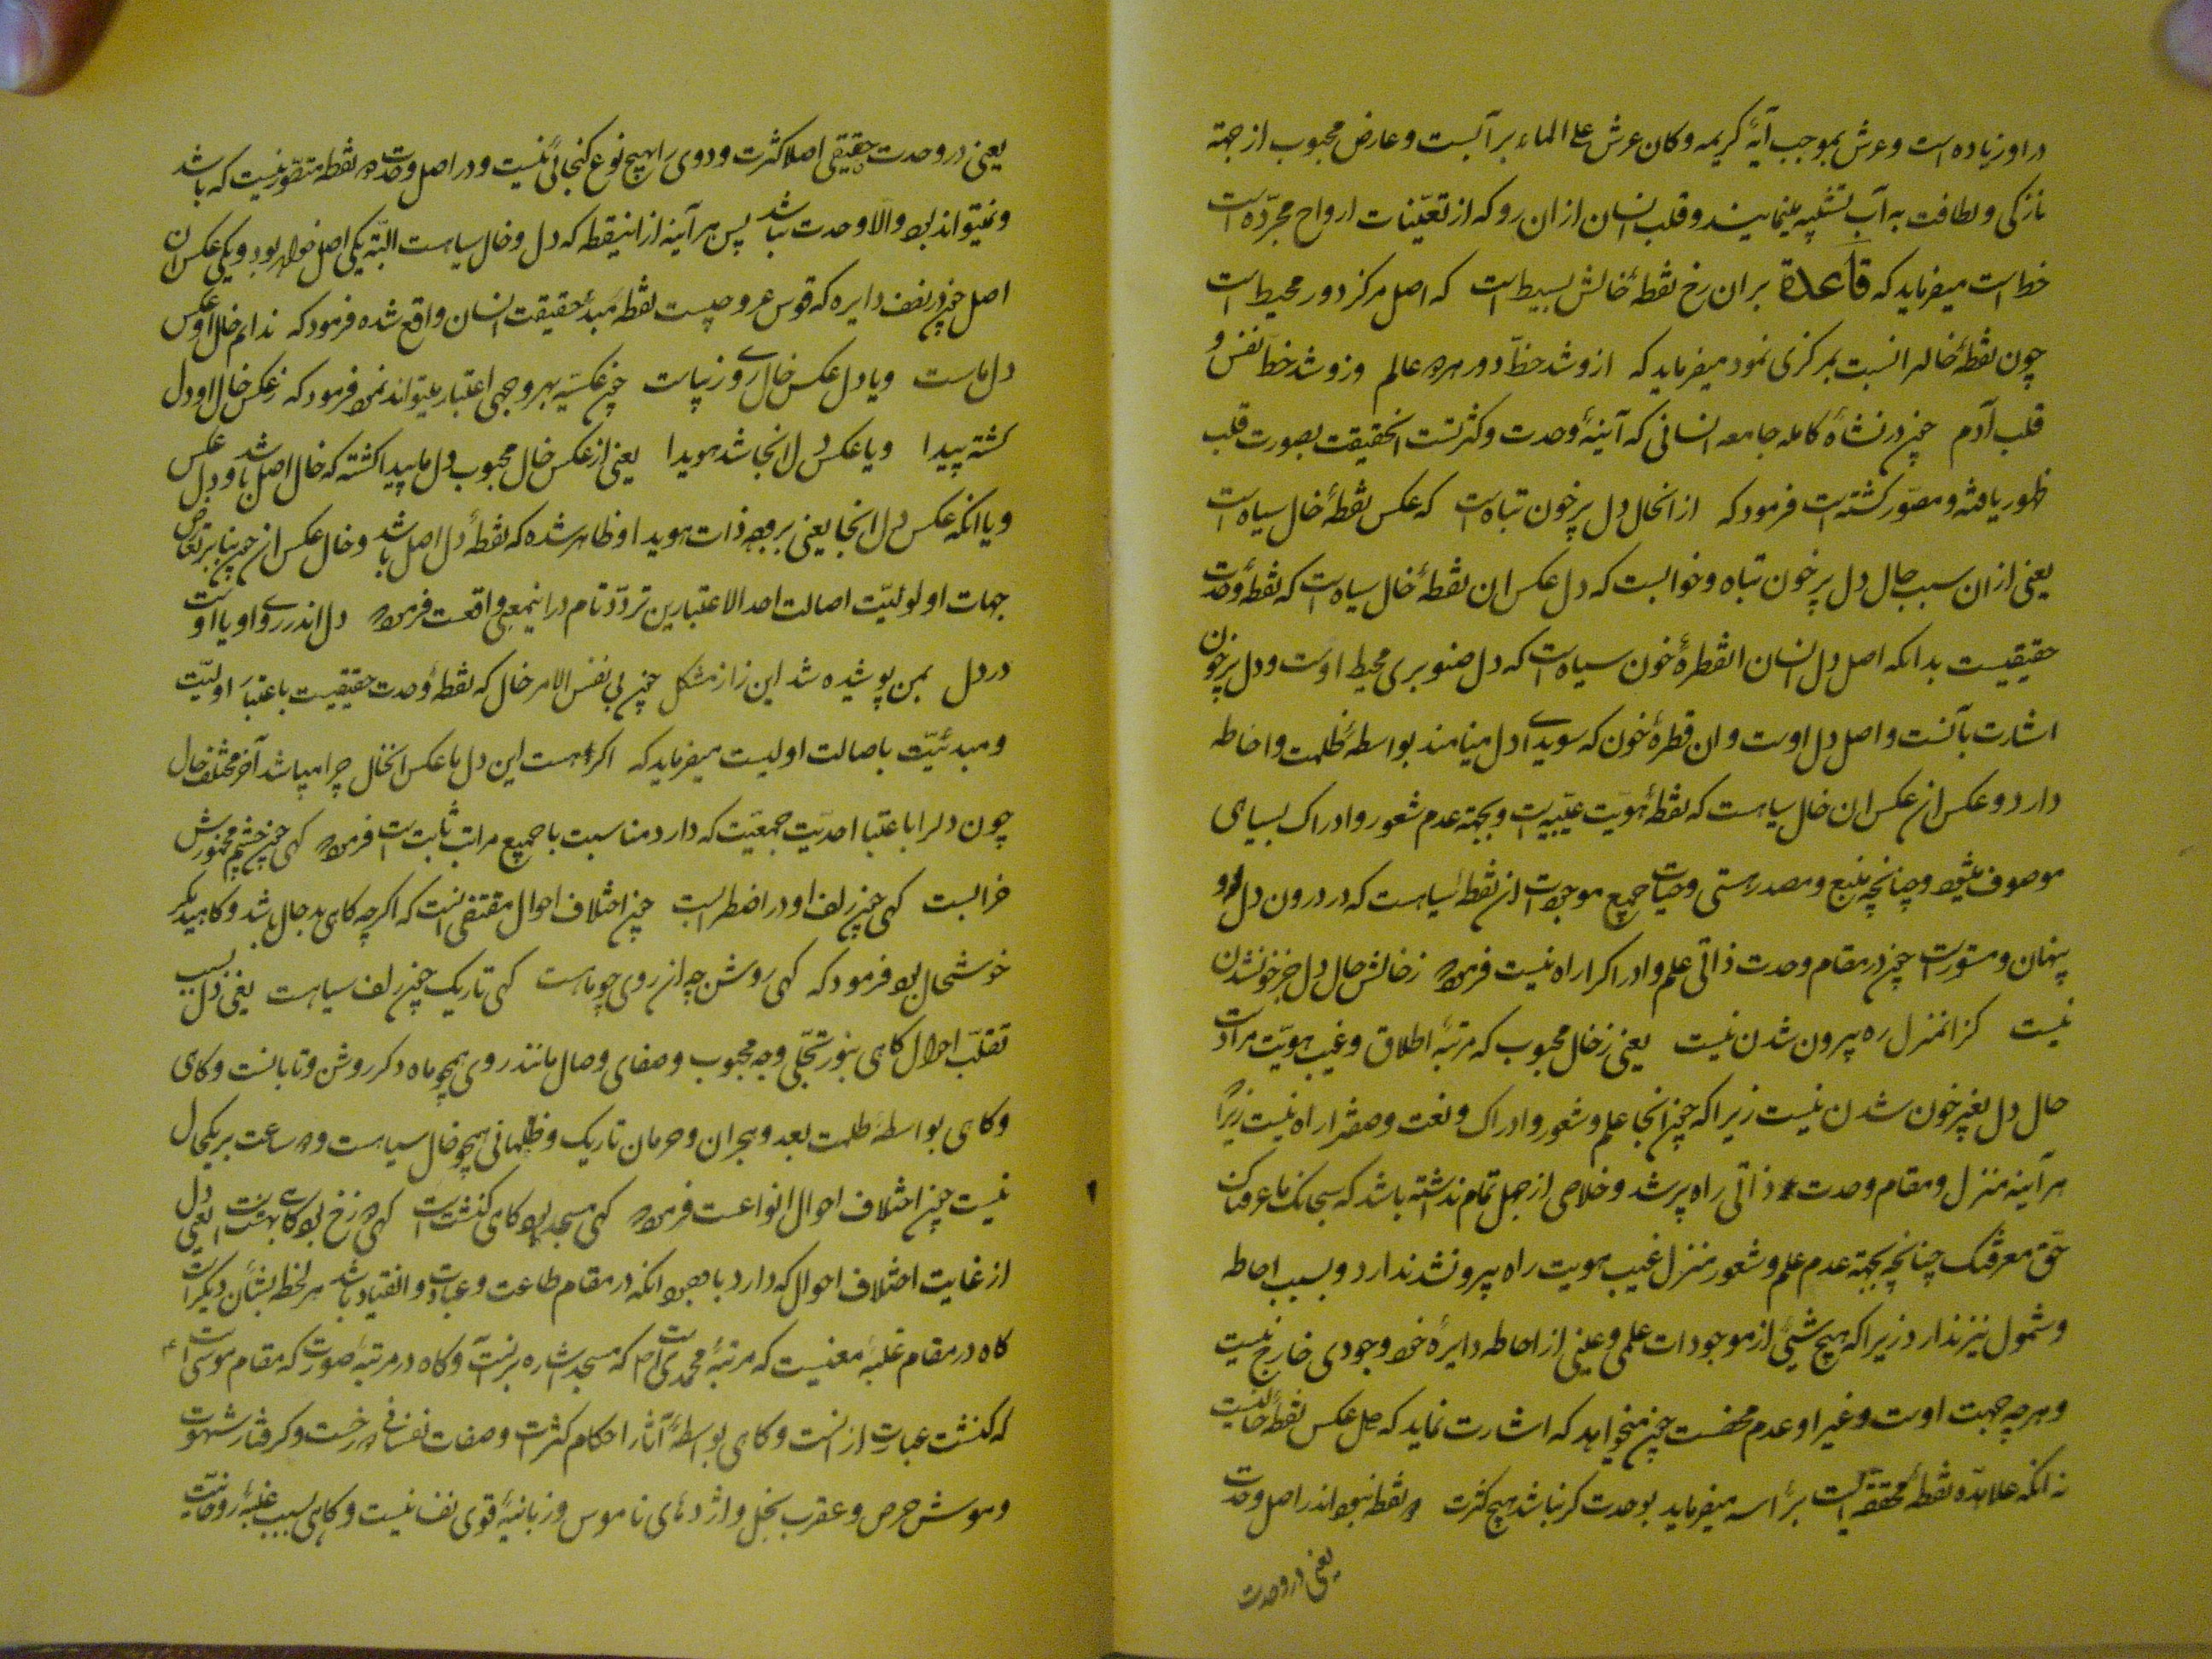 در او زیاده است و عرش بموجب آیهٔ کریمه و کان عرش علی الماء بر آبست و عارض محبوب از جهة
نازکی و لطافت به آب تشبیه مینمایند و قلب انسان از ان رو که از تعیّنات ارواح مجرّده است
خط است میفرماید که قاعدة بران رخ نقطهٔ خالش بسیط است که اصل مرکز دور محیط است
چون نقطهٔ خالرا نسبت بمرکزی نمود میفرماید که ازو شد خطّ دور هر دو عالم وزو شد خط نفس و
قلب آدم چون در نشأهٔ کامله جامعه انسانی که آینهٔ وحدت و کثرتست انحقیقت بصورت قلب
ظهور یافته و مصوّر کشته است فرمود که از انحال دل پر خون تباه است که عکس نقطهٔ خال سیاه است
یعنی از ان سبب حال دل پر خون تباه و خرابست که دل عکس ان نقطهٔ خال سیاه است که نقطهٔ وحدت
حقیقیست بدانکه اصل دل انسان انقطرهٔ خون سیاه است که دل صنوبری محیط اوست و دل پر خون
اشارت بآنست و اصل دل اوست و ان قطرهٔ خون که سویدای دل مینامند بواسطهٔ ظلمت و احاطه
دارد و عکس از عکس ان خال سیاهست که نقطهٔ هویّت غیبیه است و بجهة عدم شعور و ادراک بسیاهی
موصوف میشود و چنانچه منبع و مصدر هستی و حیات جمیع موجودات از نقطهٔ سیاهست که در درون دل او
پنهان و مستور است چون در مقام وحدت ذاتی علم و ادراکرا راه نیست فرمود ز خالش حال دل جز خون شدن
نیست کز انمنزل ره بیرون شدن نیست یعنی ز خال محبوب که مرتبهٔ اطلاق و غیب هویّت مراد است
حال دل بغیر خون شدن نیست زیرا که چون انجا علم و شعور و ادراک و نعت و صفترا راه نیست زیرا
هر آینه منزل و مقام وحدت ذاتی راه بیرشد و خلاصی از جهل تمام نداشته باشد که سبحانک ما عرفناک
حقّ معرفتک چنانچه بجهة عدم علم و شعور منزل غیب هویت راه بیرونشد ندارد و بسبب احاطه
و شمول نیز ندارد زیرا که هیچ شیئی از موجودات علمی و عینی از احاطه دایرهٔ وجودی خارج نیست
و هر چه جهت اوست و غیر او عدم محضست چون میخواهد که اشارت نماید که دل عکس نقطهٔ خالست
نه انکه علاحدّه نقطهٔ محققه است میفرماید بوحدت کر نباشد هیچ کثرت دو نقطه نبود اندر اصل وحدت
یعنی در وحدت
یعنی در وحدت حقیقی اصلا کثرت و دوی را هیچ نوع کنجائی نیست و در اصل وحدت دو نقطه متصوّر نیست که باشد
و نمیتواند بود و الّا وحدت نباشد پس هر آینه از اینقطه که دل و خال سیاهست البتّه یکی اصل خواهد بود و یکی عکس ان
اصل چون در نصف دایره که قوس عروجیست نقطه مبدٔ حقیقت انسان واقع شده فرمود که ندانم خال او عکس
دل ماست و یا دل عکس خال روی زیباست چون عکسیّه بهر وجهی اعتبار میتواند نمود فرمود که ز عکس خال او دل
کشته پیدا و یا عکس دل انجا شد هویدا یعنی از عکس خال محبوب دل ما پیدا کشته که خال اصل باشد و دل عکس
و یا انکه عکس دل انجا یعنی بر وجه ذات هویدا و ظاهر شده که نقطهٔ دل اصل باشد و خال عکس ان چون بنا بر تعارض
جهات اولولیّت اصالت احد الاعتبارین تردّد تام در اینمعنی واقعست فرمود دل اندر روی او یا اوست
در دل بمن پوشیده شد این راز مشکل چون فی نفس الامر خال که نقطهٔ وحدت حقیقیست باعتبار اولیّت
و مبدئیّت باصالت اولیست میفرماید که اکر هست این دل ما عکس انخال چرا میباشد آخر مختلف حال
چون دلرا باعتبار احدیّت جمعیّت که دارد مناسبت با جمیع مراتب ثابت است فرمود کهی چون چشم مخمورش
خرابست کهی چون زلف او در اضطرابست چون اختلاف احوال مقتضی انست که اکر چه کاهی بد حال باشد و کاهی دیکر
خوشحال بود فرمود که کهی روشن چه ان روی چو ماهست کهی تاریک چون زلف سیاهست یعنی دل بسبب
تقلّب احوال کاهی بنور تجلّی وجه محبوب و صفای وصال مانند روی همچو ماه دکر روشن و تابانست و کاهی
و کاهی بواسطهٔ ظلمت بعد و هجران و حرمان تاریک و ظلمانی همچو خال سیاهست و در ساعت بریکحال
نیست چون اختلاف احوال انواعست فرمود کهی مسجد بود کاهی کنشت است کهی دوزخ بود کاهی بهشت است یعنی دل
از غایت اختلاف احوال که دارد با وجود انکه در مقام طاعت و عبادت و انقیاد باشد هر لحظه بشأن دیکر است
کاه در مقام غلبهٔ معنیست که مرتبهٔ محمّدی است که مسجد اشاره برانست و کاه در مرتبهٔ صورت که مقام موسی است
که کنشت عبارت از انست و کاهی بواسطهٔ آثار احکام کثرت و صفات نفسانی دوزخست و کرفتار شهوت
و موش حرص و عقرب بخل و اژدهای ناموس و زبانیهٔ قوی نفسانیست و کاهی بسبب غلبهٔ روحانیّت